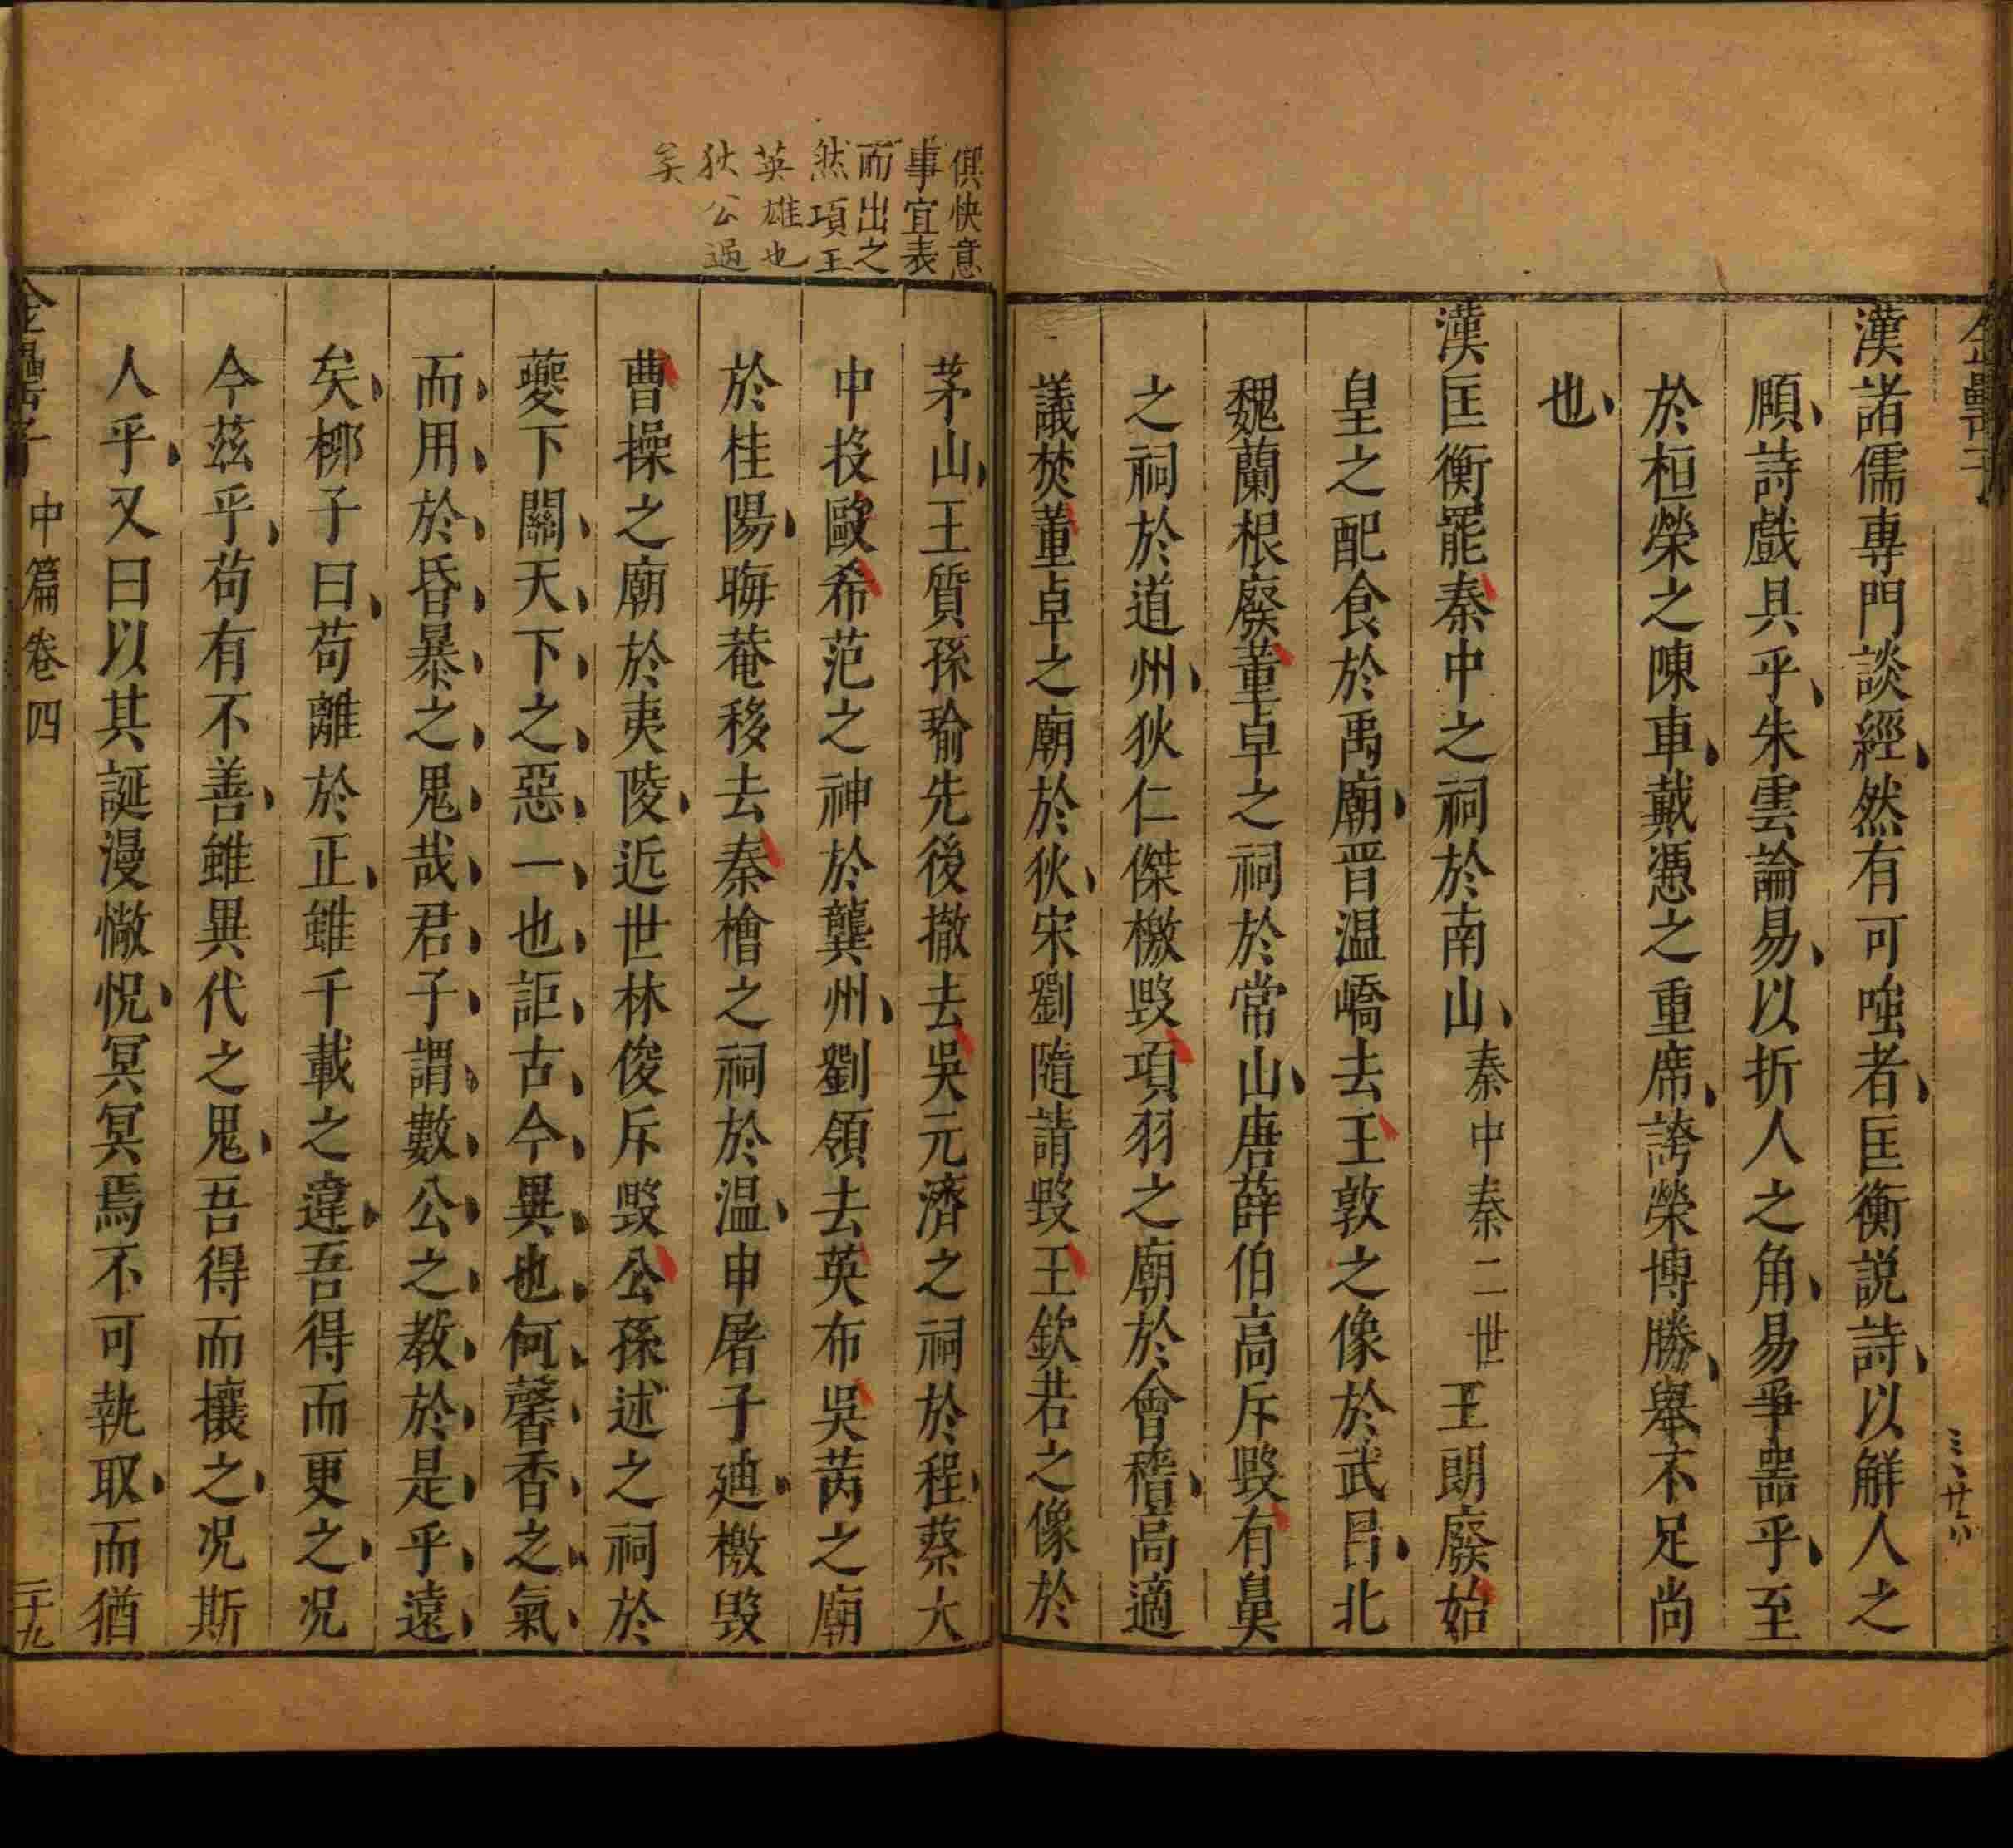 漢諸儒專門談經然有可嗤者匡衡説詩以解人之
頤詩戲具乎朱雲論易以折人之角易爭噐乎至
於桓榮之陳車戴憑之重席誇榮博勝舉不足尚
也
漢匡衡罷秦中之祠於南山秦中秦二世王朗廢始
皇之配食於禹廟晋温嶠去王敦之像於武昌北
魏蘭根廢董卓之祠於常山唐薛伯高斥毀有鼻
之祠於道州狄仁傑檄毀項羽之廟於會稽高適
議焚董卓之廟於狄宋劉隨請毀王欽若之像於
俱快意
事宜表
而出之
然項王
英雄也
狄公過
矣
茅山王質孫瑜先後撤去吳元濟之祠於程蔡大
中投歐希范之神於龔州劉領去英布吳芮之廟
於桂陽晦菴移去秦檜之祠於温申屠子迪檄毀
曹操之廟於夷陵近世林俊斥毀公孫述之祠於
夔下關天下之惡一也詎古今異也何馨香之氣
而用於昏暴之鬼哉君子謂數公之教於是乎遠
矣栁子曰苟離於正雖千載之違吾得而更之况
今茲乎苟有不善雖異代之鬼吾得而攘之况斯
人乎又曰以其誕漫惝怳冥冥焉不可執取而猶
中篇卷四
二十九